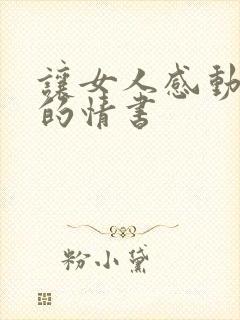 讓女人感動
的情書
粉小黛